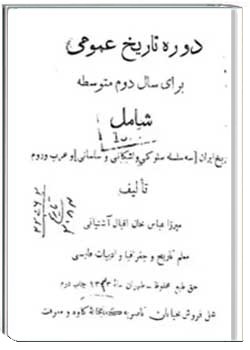 دوره تاریخ عمومی
برای سال دوم متوسطه
شامل
تاریخ ایران [سه سلسله سلوکی و اشکانی و ساسانی] و عرب و روم
تألیف
میرزا عباس خان اقبال آشتیانی
معلم تاریخ و جغرافیا و ادبیات فارسی
حق طبع محفوظ - طهران چاپ دوم
محل فروش خیابان ناصریه کتابخانه کاوه و معرفت